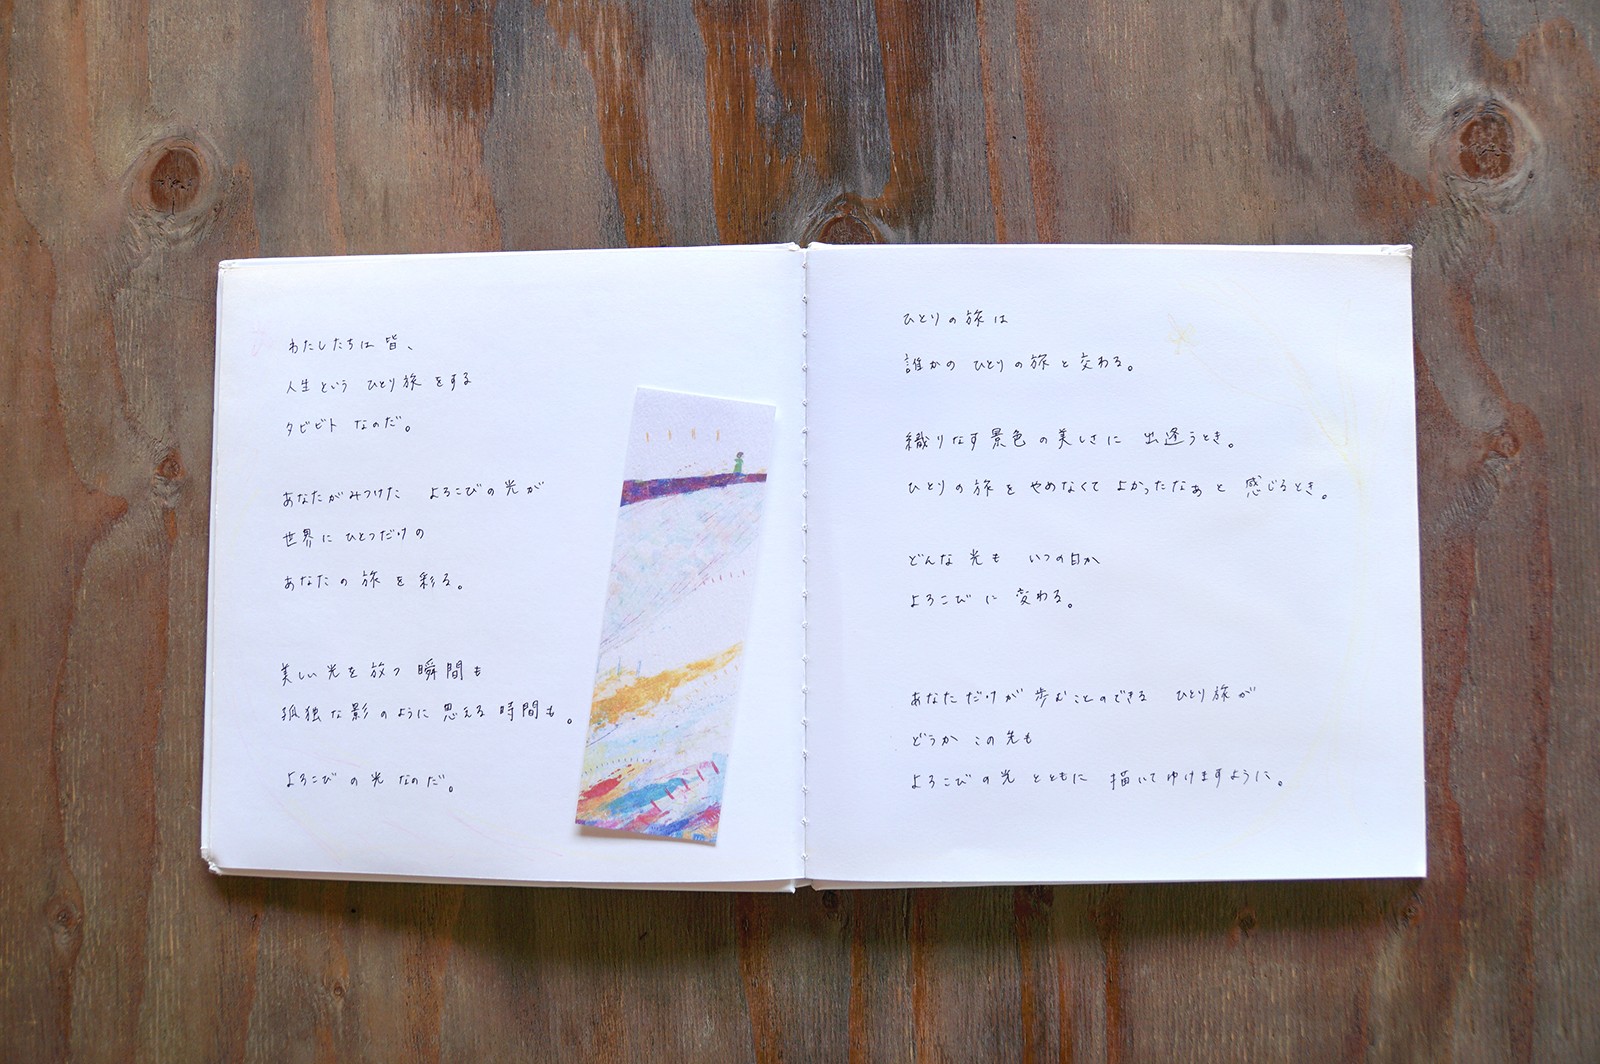 わたしたちは皆、
人生という ひとり旅 をする
タビビト なのだ。
あなたがみつけた よろこびの光が
世界に ひとつだけの
あなたの 旅を 彩る。
美しい光を 放つ 瞬間も
孤独な影のように 思える 時間も。
よろこびの光 なのだ。
ひとりの旅は
誰かの ひとりの旅と 交わる。
織りなす景色の美しさに 出逢うとき。
ひとりの旅を やめなくて よかったなぁと 感じるとき。
どんな光も いつの日か
よろこびに 変わる。
あなただけが 歩むことのできる ひとり旅が
どうか この先も
よろこびの光 とともに 描いてゆけますように。